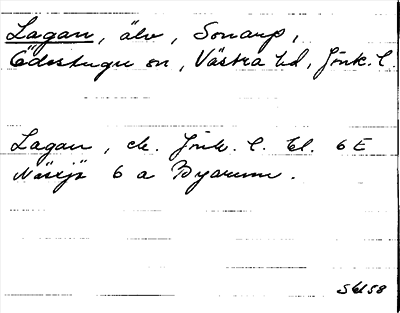 Lagan, älv, Sonarp,
Ödestugu sn, Västra hd, Jönk. l.
Lagan, ek. Jönk. l. bl. 6 E
Nässjö 6 a Byarum.